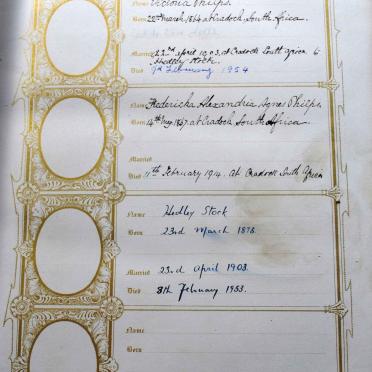 Victoria Philps.
Born 22nd March 1864 at Cradock, South Africa.
Married 22nd April 1903, at Cradock South Africa to
Hedley Stock.
Died 9th February 1954
Fredericka Alexandria Agnes Philps.
Born 14th May 1867 at Cradock South Africa.
Married
Died 11th February 1914. At Cradock South Africa
Name Hedley Stock
Born 23rd March 1878.
Married 23rd April 1903.
Died 8th February 1953.
Name
Born